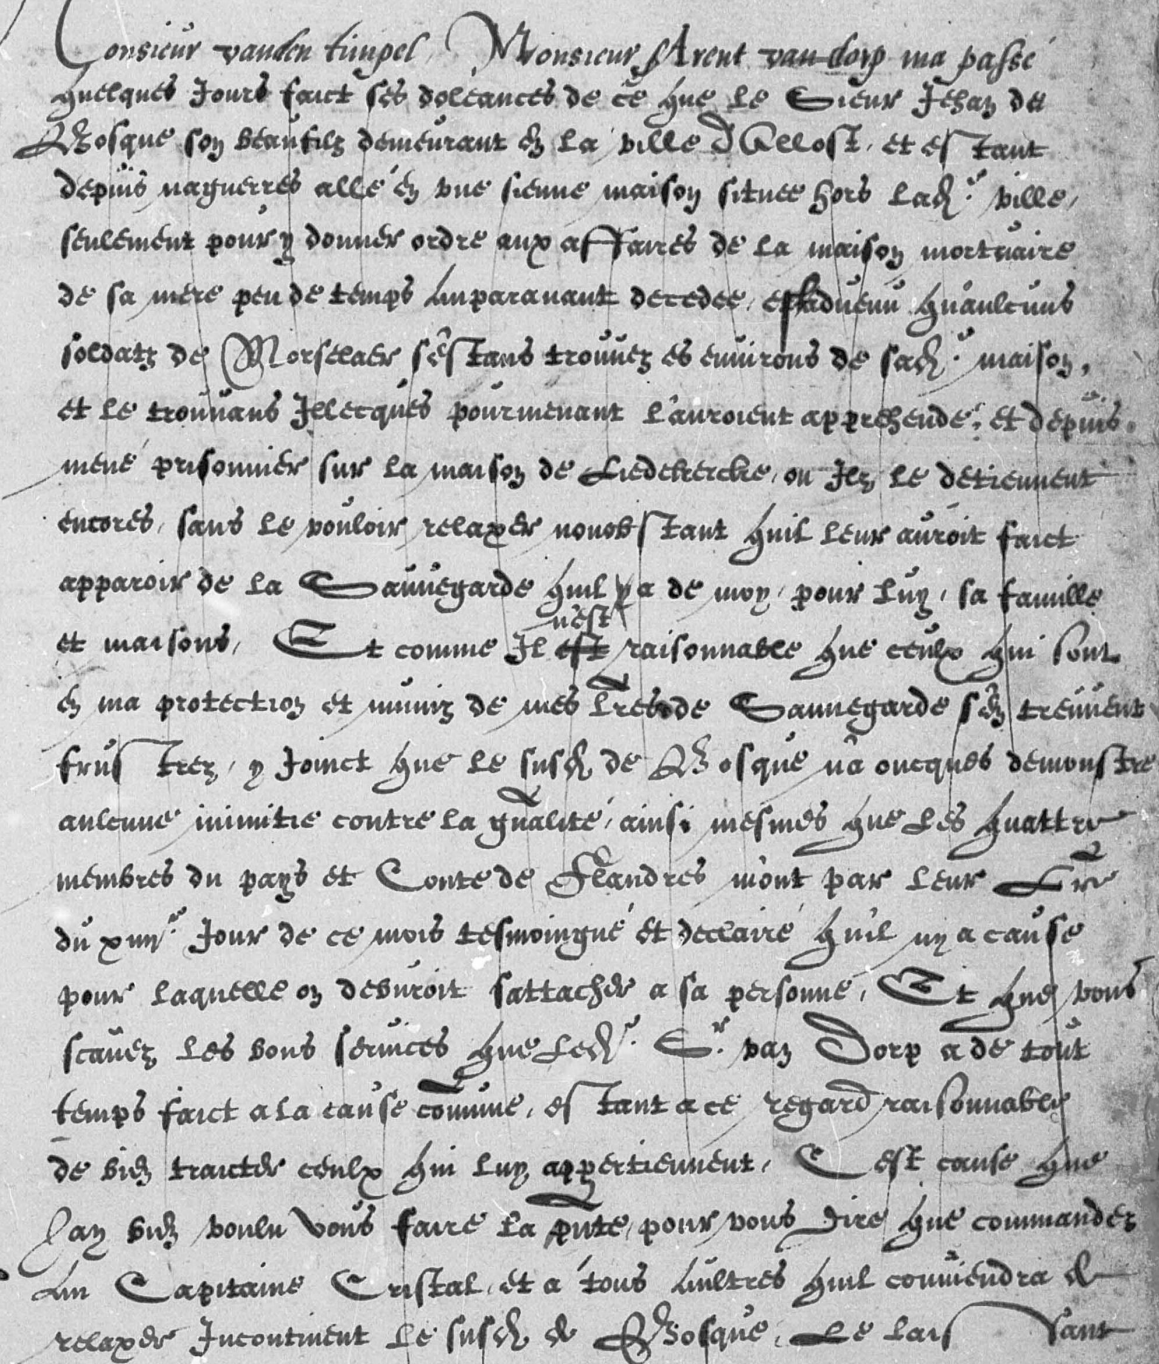 Monsieur vanden timpel, Monsieur Arent van dorp ma passé
quelques Jours faict ses doleances de ce que le Sieur Jehan de
Bosque son beaufilz demeurant en la ville d'Allost, et estant
depuis naguerres allé en une sienne maison situee hors lad.e ville,
seulement pour y donner ordre aux affaires de la maison mortuaire
de sa mere peu de temps auparavant decedee, est advenu qu'aulcuns
soldatz de Morselaer s'estans trouvez es environs de sad.e maison,
et le trouvans Illecques pourmenant l'auroient apprehendé, et depuis
mené prisonnier sur la maison de Liedekercke, ou Ilz le detiennent
encores, sans le vouloir relaxer nonobstant quil leur auroit faict
apparoir de la Sauvegarde quil y a de moy, pour luy, sa famille
et maisons, Et comme Il est n'est raisonnable que ceulx qui sont
en ma protection et muniz de mes lres de Sauvegarde s'en treuvent
frustrez, y Joinct que le susd. de Bosque n'a oncques demonstré
aulcune inimitié contre la gnalité, ainsi mesmes que Les quattre
membres du pays et Conte de Flandres m'ont par leur Lre
du xiiij.e Jour de ce mois tesmoingné et declairé qu'il ny a cause
pour laquelle on debvroit sattacher a sa personne, Et que vous
scavez les bons services que Led.t S.r van Dorp a de tout
temps faict a la cause comune, estant a ce regard raisonnable
de bien traicter ceulx qui luy appertiennent, C'est cause que
Jay bien voulu vous faire la pnte, pour vous dire que commandez
au Capitaine Cristal, et a tous aultres quil conviendra de
relaxer Incontinent le susd. de Bosque, Le laissant